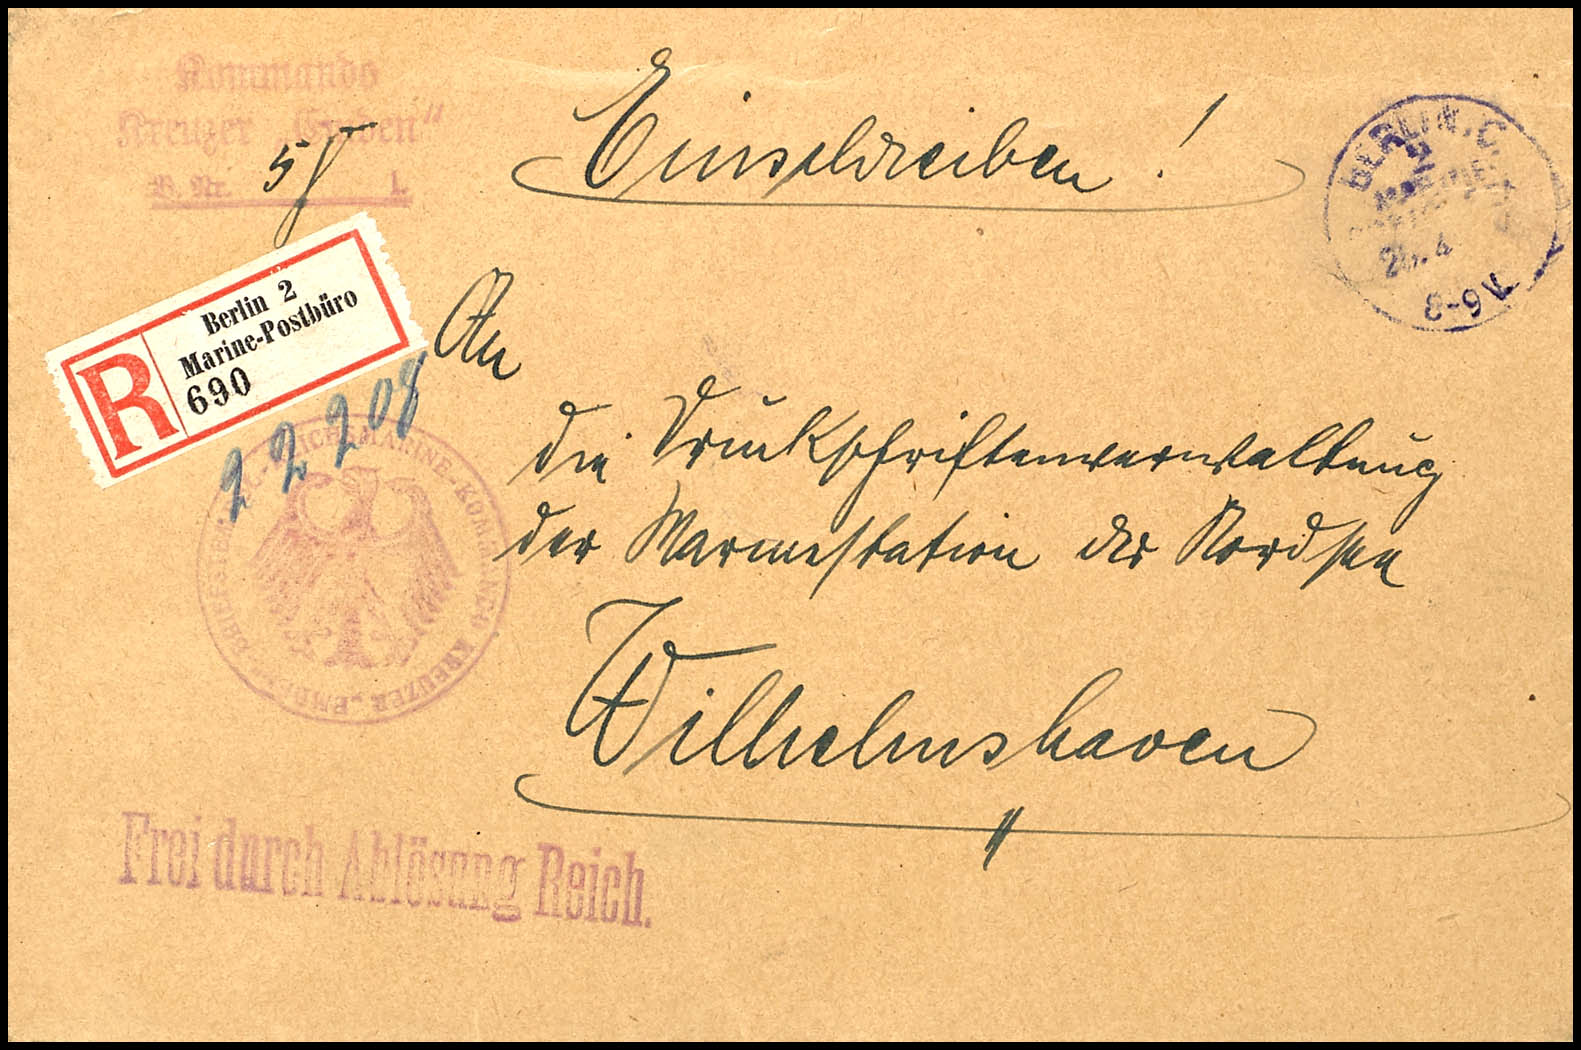 Kommando
Kreuzer „Emden“
B. Nr. 58 I.
Einschreiben!
BERLIN. C. 2
26. 4
8-9 V.
Berlin 2
Marine-Postbüro
R 690
22208
An
die Druckschriftenverwaltung
der Marinestation der Nordsee
Wilhelmshaven
REICHSMARINE-KOMMANDO KREUZER „EMDEN“
BRIEFSTEMPEL
Frei durch Ablösung Reich.